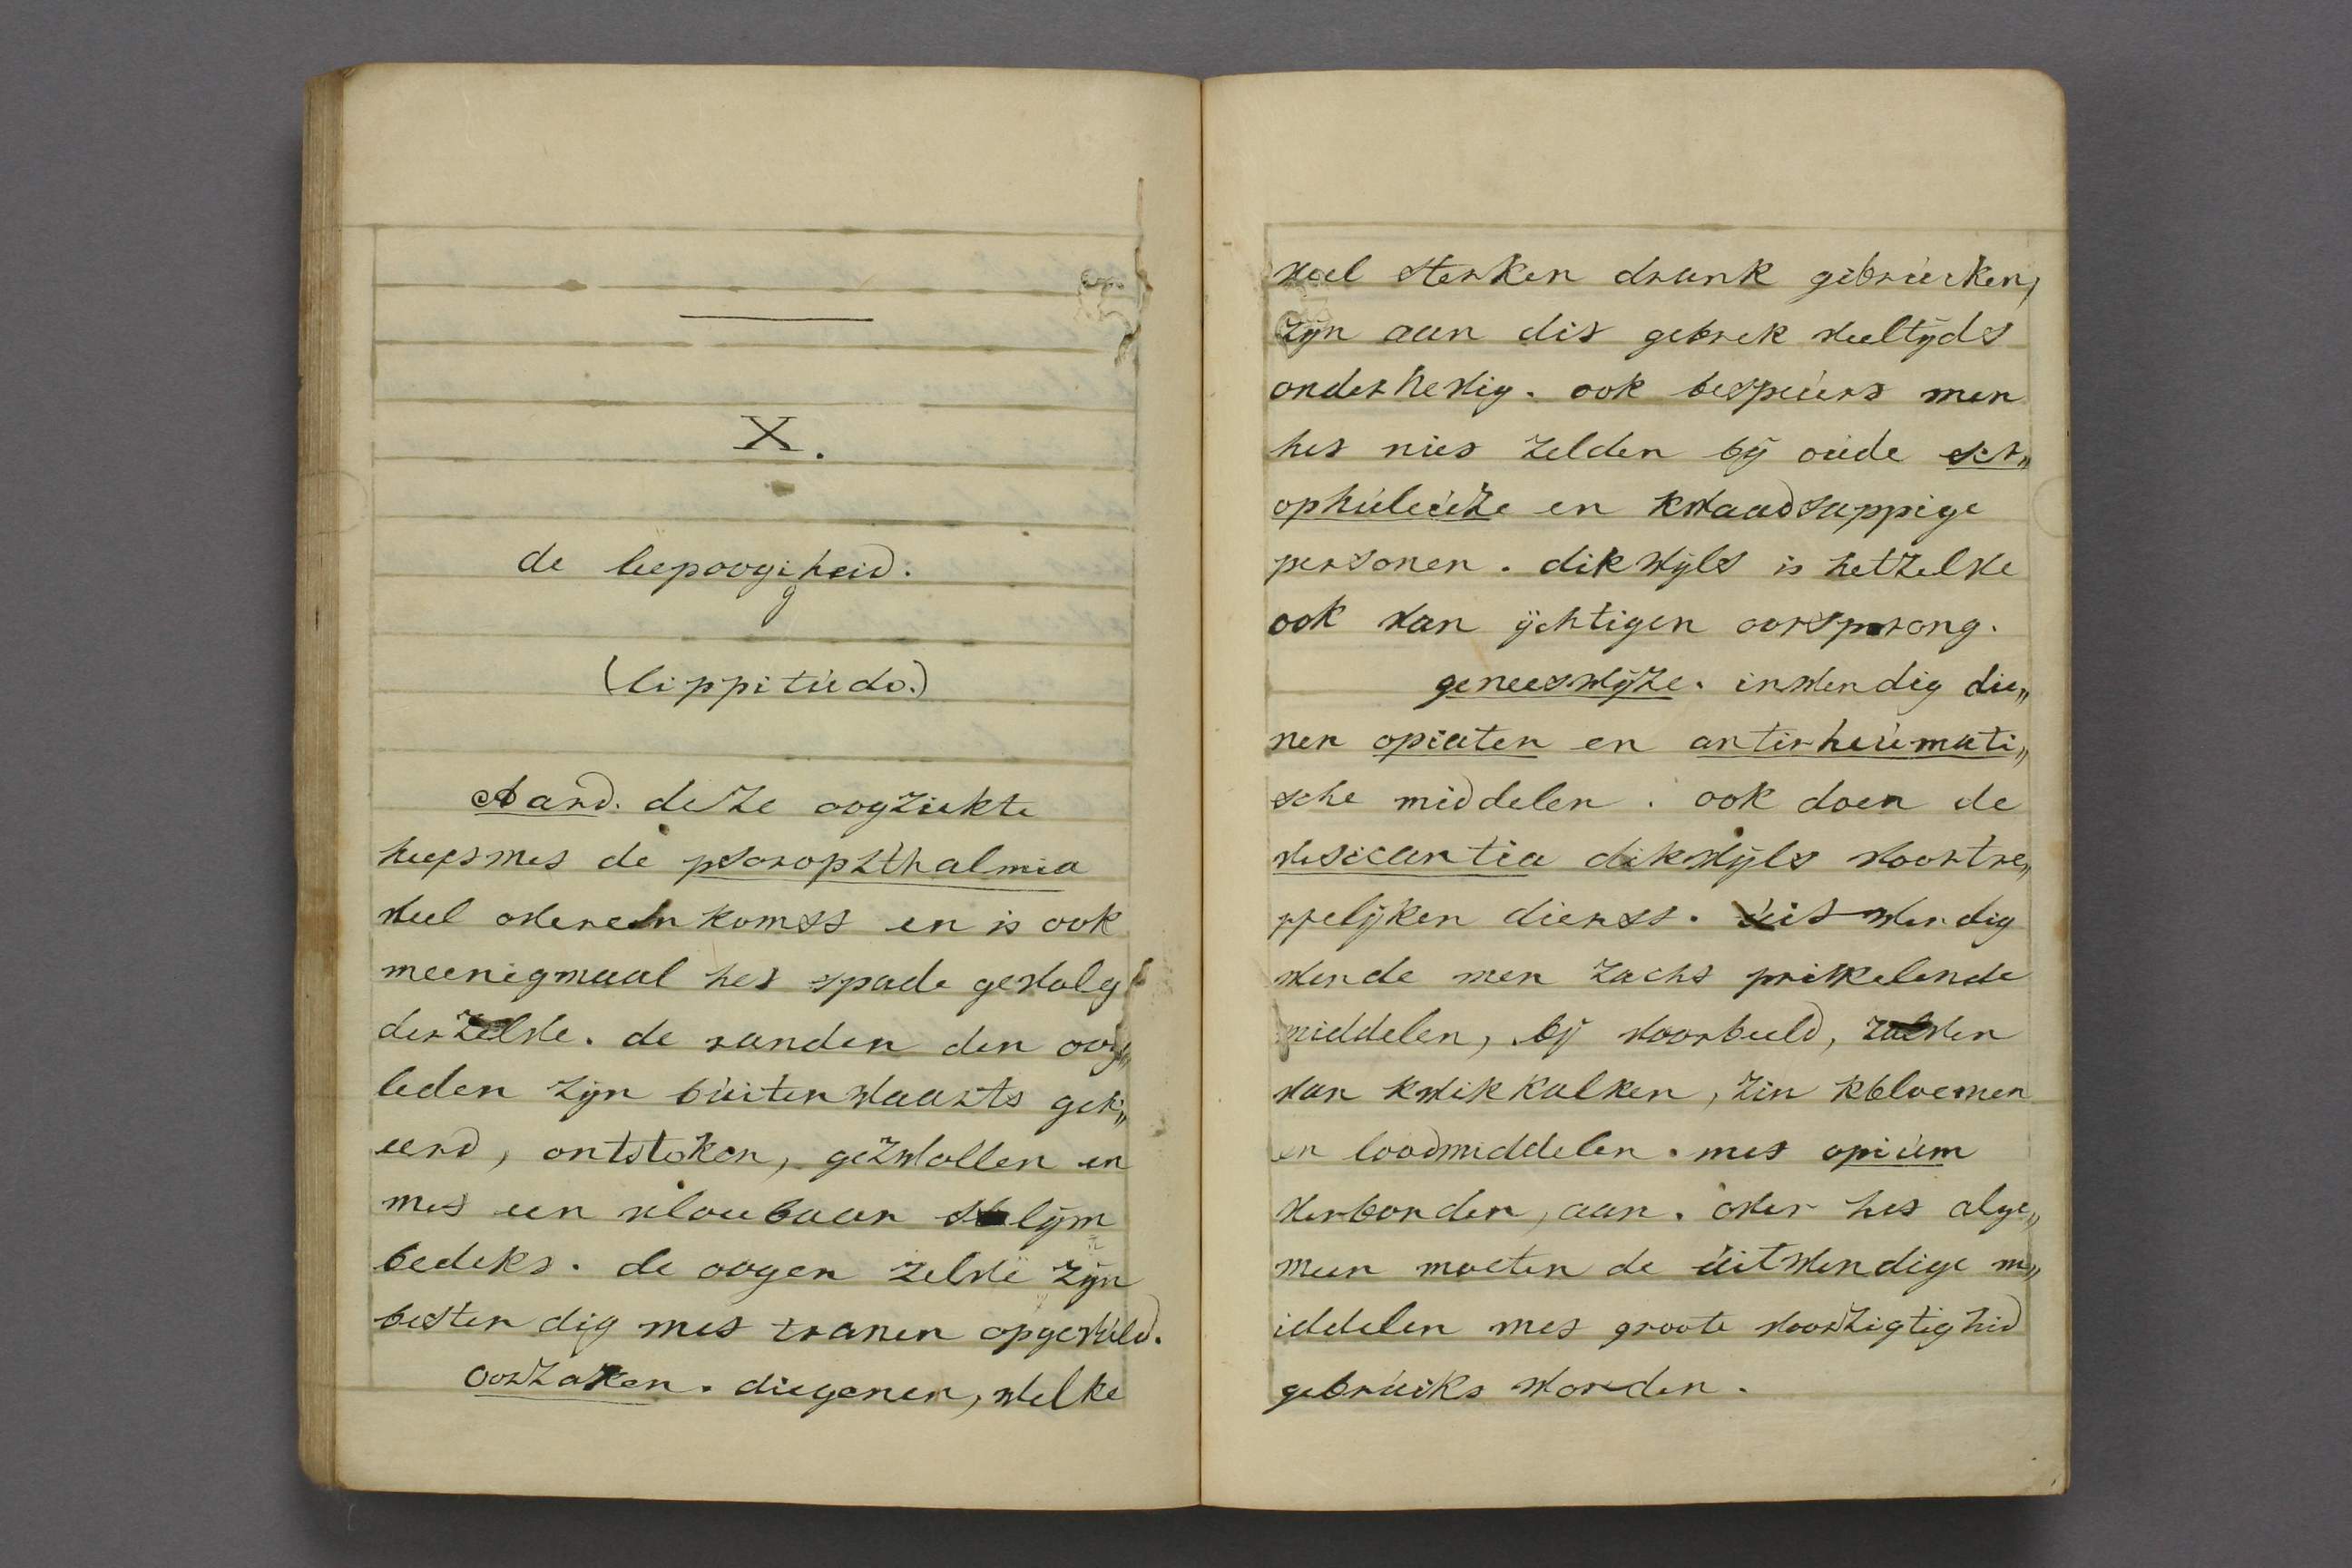 X.
de leepoogigheid.
(lippitudo.)
Aard. deze oogziekte
heeft met de psorophthalmia
veel overeenkomst en is ook
meenigmaal het spade gevolg
derzelve. de randen den oog„
leden zyn buitenwaarts gek„
eerd, ontstoken, gezwollen en
met een vloeibaar slijm
bedekt. de oogen zelve zyn
bestendig met tranen opgevuld.
Oorzaken. diegenen, welke
veel sterken drank gebruiken,
zyn aan dit gebrek veeltyds
onderhevig. ook bespeurt men
het niet zelden by oude scr„
ophuleuze en kwaadsappige
personen. dikwyls is hetzelve
ook van ijchtigen oorsprong.
geneeswyze. inwendig die„
nen opiaten en antirheumati„
sche middelen. ook doen de
vesicantia dikwyls voortre„
ffelyken dienst. uitwendig
wende men zacht prikelende
middelen, by voorbeeld, zalven
van kwikkalken, zinkbloemen
en loodmiddelen. met opium
verbonden, aan. over het alge„
meen moeten de uitwendige m„
iddelen met groote voorzigtighid
gebruikt worden.